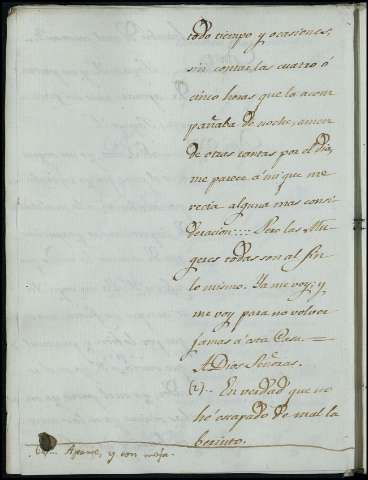 todo tiempo y ocasiones,
sin contar las cuatro ó
cinco horas que la acom
pañaba de noche, amen
de otras tantas por el dia,
me parece á mi que me
recia alguna mas consi
deracion:::: Pero las Mu
geres todas son al fin
lo mismo. Ya me voy; y
me voy para no volver
jamas á esta Casa. =
A Dios Señoras.
(2).. En verdad que no
hé escapado de mal la
berinto.
Aparte, y con mofa.